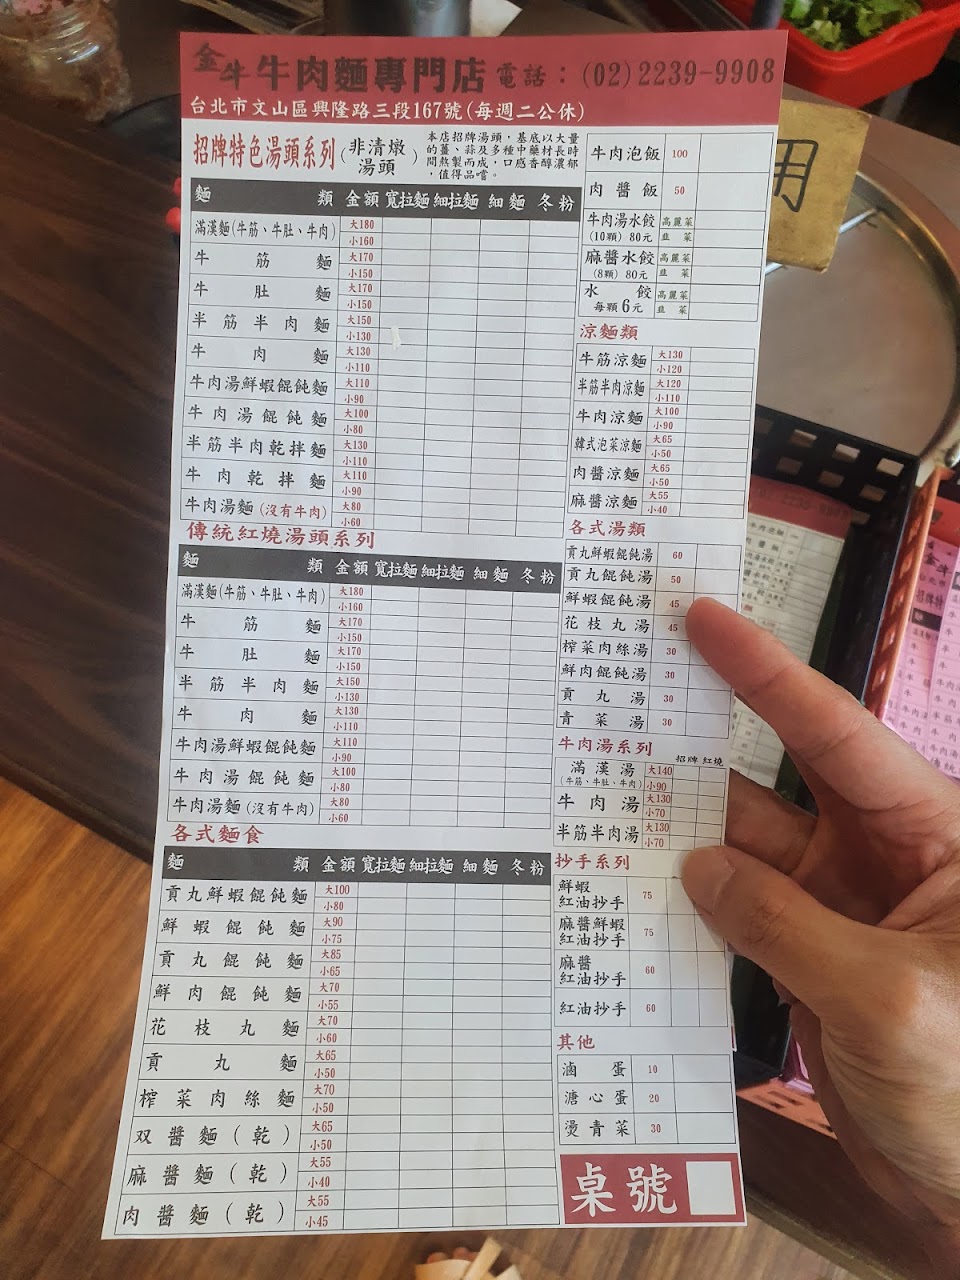 金牛 牛肉麵專門店 電話：(02)2239-9908
台北市文山區興隆路三段167號(每週二公休)
招牌特色湯頭系列(非清燉湯頭)
本店招牌湯頭，基底以大量
的薑、蒜及多種中藥材長時
間熬製而成，口感香醇濃郁
，值得品嚐。
麵類 金額 寬拉麵 細拉麵 細麵 冬粉
滿漢麵(牛筋、牛肚、牛肉) 大180 小160
牛筋麵 大170 小150
牛肚麵 大170 小150
半筋半肉麵 大150 小130
牛肉麵 大130 小110
牛肉湯鮮蝦餛飩麵 大110 小90
牛肉湯餛飩麵 大100 小80
半筋半肉乾拌麵 大130 小110
牛肉乾拌麵 大110 小90
牛肉湯麵(沒有牛肉) 大80 小60
傳統紅燒湯頭系列
麵類 金額 寬拉麵 細拉麵 細麵 冬粉
滿漢麵(牛筋、牛肚、牛肉) 大180 小160
牛筋麵 大170 小150
牛肚麵 大170 小150
半筋半肉麵 大150 小130
牛肉麵 大130 小110
牛肉湯鮮蝦餛飩麵 大110 小90
牛肉湯餛飩麵 大100 小80
牛肉湯麵(沒有牛肉) 大80 小60
各式麵食
麵類 金額 寬拉麵 細拉麵 細麵 冬粉
貢丸鮮蝦餛飩麵 大100 小80
鮮蝦餛飩麵 大90 小75
貢丸餛飩麵 大85 小65
鮮肉餛飩麵 大70 小55
花枝丸麵 大70 小60
貢丸麵 大65 小50
榨菜肉絲麵 大70 小50
双醬麵(乾) 大65 小50
麻醬麵(乾) 大55 小40
肉醬麵(乾) 大55 小45
牛肉泡飯 100
肉醬飯 50
牛肉湯水餃 高麗菜
(10顆) 80元 韭菜
麻醬水餃 高麗菜
(8顆) 80元 韭菜
水餃 高麗菜
每顆6元 韭菜
涼麵類
牛筋涼麵 大130 小120
半筋半肉涼麵 大120 小110
牛肉涼麵 大100 小90
韓式泡菜涼麵 大65 小50
肉醬涼麵 大65 小50
麻醬涼麵 大55 小40
各式湯類
貢丸鮮蝦餛飩湯 60
貢丸餛飩湯 50
鮮蝦餛飩湯 45
花枝丸湯 45
榨菜肉絲湯 30
鮮肉餛飩湯 30
貢丸湯 30
青菜湯 30
牛肉湯系列 招牌 紅燒
滿漢湯 大140
(牛筋、牛肚、牛肉) 小90
牛肉湯 大130 小70
半筋半肉湯 大130 小70
抄手系列
鮮蝦
紅油抄手 75
麻醬鮮蝦
紅油抄手 75
麻醬
紅油抄手 60
紅油抄手 60
其他
滷蛋 10
溏心蛋 20
燙青菜 30
桌號
用